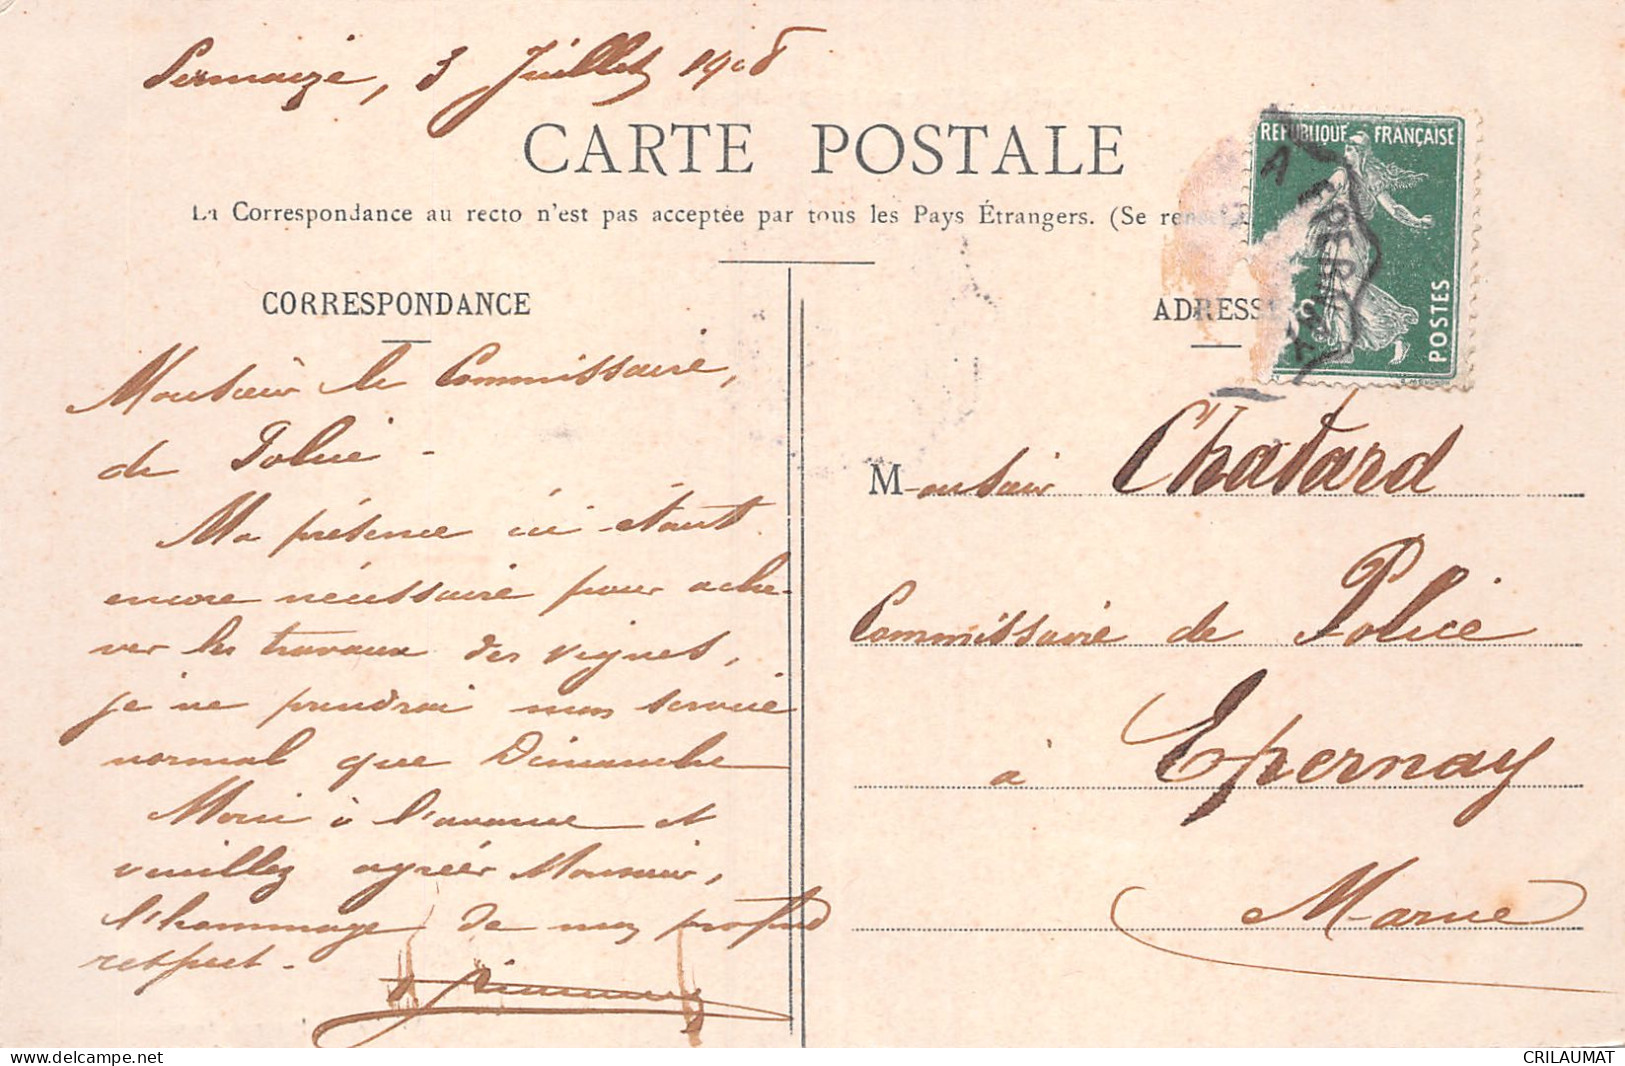 Sermaize, 3 Juillet 1908
CARTE POSTALE
La Correspondance au recto n'est pas acceptée par tous les Pays Étrangers. (Se
REPUBLIQUE FRANÇAISE
POSTES
CORRESPONDANCE
Monsieur le Commissaire,
de Police -
Ma présence ici étant
encore nécessaire pour ache-
ver les travaux des vignes,
je ne prendrai mon service
normal que Dimanche
Merci à l'avance et
veuillez agréer Monsieur,
l'hommage de mon profond
respect.
ADRESSE
Monsieur Chatard
Commissaire de Police
à Epernay
Marne
CRILAUMAT
www.delcampe.net